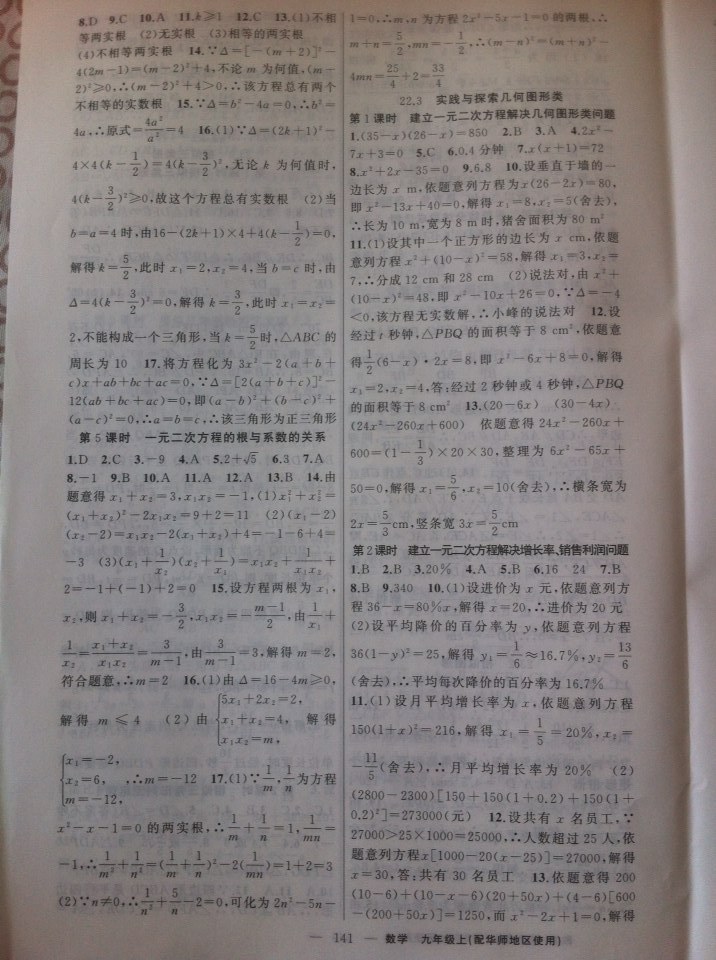 8.D 9.C 10.A 11.k≥1 12.C 13.(1)不相
等两实根 (2)无实根 (3)相等的两实根
(4)不相等两实根 14.∵Δ=[-(m+2)]²-
4(2m-1)=(m-2)²+4,不论 m 为何值,(m-
2)²≥0,∴(m-2)²+4>0,∴该方程总有两个
不相等的实数根 15.∵Δ=b²-4a=0,∴b²=
4a,∴原式=4a²/a²=4 16.(1)∵Δ=(2k+1)²-
4×4(k-1/2)=4(k-3/2)²,无论 k 为何值时,
4(k-3/2)²≥0,故这个方程总有实数根 (2)当
b=a=4 时,由16-(2k+1)×4+4(k-1/2)=0,
解得 k=5/2,此时 x₁=2,x₂=4,当 b=c 时,由
Δ=4(k-3/2)²=0,解得 k=3/2,此时 x₁=x₂=
2,不能构成一个三角形,当 k=5/2时,△ABC 的
周长为 10 17.将方程化为 3x²-2(a+b+
c)x+ab+bc+ac=0,∵Δ=[2(a+b+c)]²-
12(ab+bc+ac)=0,即(a-b)²+(b-c)²+
(a-c)²=0,∴a=b=c,∴该三角形为正三角形
第 5 课时 一元二次方程的根与系数的关系
1.D 2.C 3.-9 4.A 5.2+√5 6.3 7.A
8.-1 9.B 10.A 11.A 12.A 13.B 14.由
题意得 x₁+x₂=3,x₁x₂=-1,(1)x₁²+x₂²=
(x₁+x₂)²-2x₁x₂=9+2=11 (2)(x₁-2)
(x₂-2)=x₁x₂-2(x₁+x₂)+4=-1-6+4=
-3 (3)(x₁+1/x₂)(x₂+1/x₁)=x₁x₂+1/x₁x₂+
2=-1+(-1)+2=0 15.设方程两根为 x₁,
x₂,则 x₁+x₂=-3/2,x₁x₂=-m-1/2,由1/x₁+
1/x₂=x₁+x₂/x₁x₂=3/m-1,由3/m-1=3,解得 m=2,
符合题意,∴m=2 16.(1)由 Δ=16-4m≥0,
解得 m≤4 (2)由{5x₁+2x₂=2, x₁+x₂=4, x₁x₂=m, 解得
{x₁=-2, x₂=6, m=-12, ,∴m=-12 17.(1)∵1/m,1/n为方程
x²-x-1=0 的两实根,∴1/m+1/n=1,1/mn=
-1,∴1/m²+1/n²=(1/m+1/n)²-2(1/mn)=1+2=3
(2)∵n≠0,∴1/n²+5/n-2=0,可化为 2n²-5n-
1=0,∴m,n 为方程 2x²-5x-1=0 的两根,∴
m+n=5/2,mn=-1/2,∴(m-n)²=(m+n)²-
4mn=25/4+2=33/4
22.3 实践与探索几何图形类
第 1 课时 建立一元二次方程解决几何图形类问题
1.(35-x)(26-x)=850 2.B 3.A 4.2x²-
7x+3=0 5.C 6.0.4分钟 7.x(x+1)=72
8.x²+2x-35=0 9.6,8 10.设垂直于墙的一
边长为 x m,依题意列方程为x(26-2x)=80,
即 x²-13x+40=0,解得 x₁=8,x₂=5(舍去),
∴长为 10 m,宽为 8 m 时,猪舍面积为 80 m²
11.(1)设其中一个正方形的边长为 x cm,依题
意列方程 x²+(10-x)²=58,解得 x₁=3,x₂=
7,∴分成 12 cm 和 28 cm (2)说法对,由 x²+
(10-x)²=48,即 x²-10x+26=0,∵Δ=-4
<0,该方程无实数解,∴小峰的说法对 12.设
经过 t 秒钟,△PBQ 的面积等于 8 cm²,依题意
得1/2(6-x)·2x=8,即 x²-6x+8=0,解得
x₁=2,x₂=4,答:经过 2 秒钟或 4 秒钟,△PBQ
的面积等于 8 cm² 13.(20-6x) (30-4x)
(24x²-260x+600) 依题意得 24x²-260x+
600=(1-1/3)×20×30,整理为 6x²-65x+
50=0,解得 x₁=5/6,x₂=10(舍去),∴横条宽为
2x=5/3cm,竖条宽 3x=5/2cm
第 2 课时 建立一元二次方程解决增长率、销售利润问题
1.B 2.B 3.20% 4.A 5.B 6.16 24 7.B
8.B 9.340 10.(1)设进价为 x 元,依题意列方
程 36-x=80%x,解得 x=20,∴进价为 20 元
(2)设平均降价的百分率为 y,依题意列方程
36(1-y)²=25,解得 y₁=1/6≈16.7%,y₂=13/6
(舍去),∴平均每次降价的百分率为 16.7%
11.(1)设月平均增长率为 x,依题意列方程
150(1+x)²=216,解得 x₁=1/5=20%,x₂=
-11/5(舍去),∴月平均增长率为 20% (2)
(2800-2300)[150+150(1+0.2)+150(1+
0.2)²]=273000(元) 12.设共有 x 名员工,∵
27000>25×1000=25000,∴人数超过 25 人,依
题意列方程x[1000-20(x-25)]=27000,解得
x=30,答:共有 30 名员工 13.依题意得 200
(10-6)+(10-x-6)(200+50x)+(4-6)[600
-(200+50x)]=1250,而 x²-2x+1=0,解得
— 141 — 数学 九年级上(配华师地区使用)